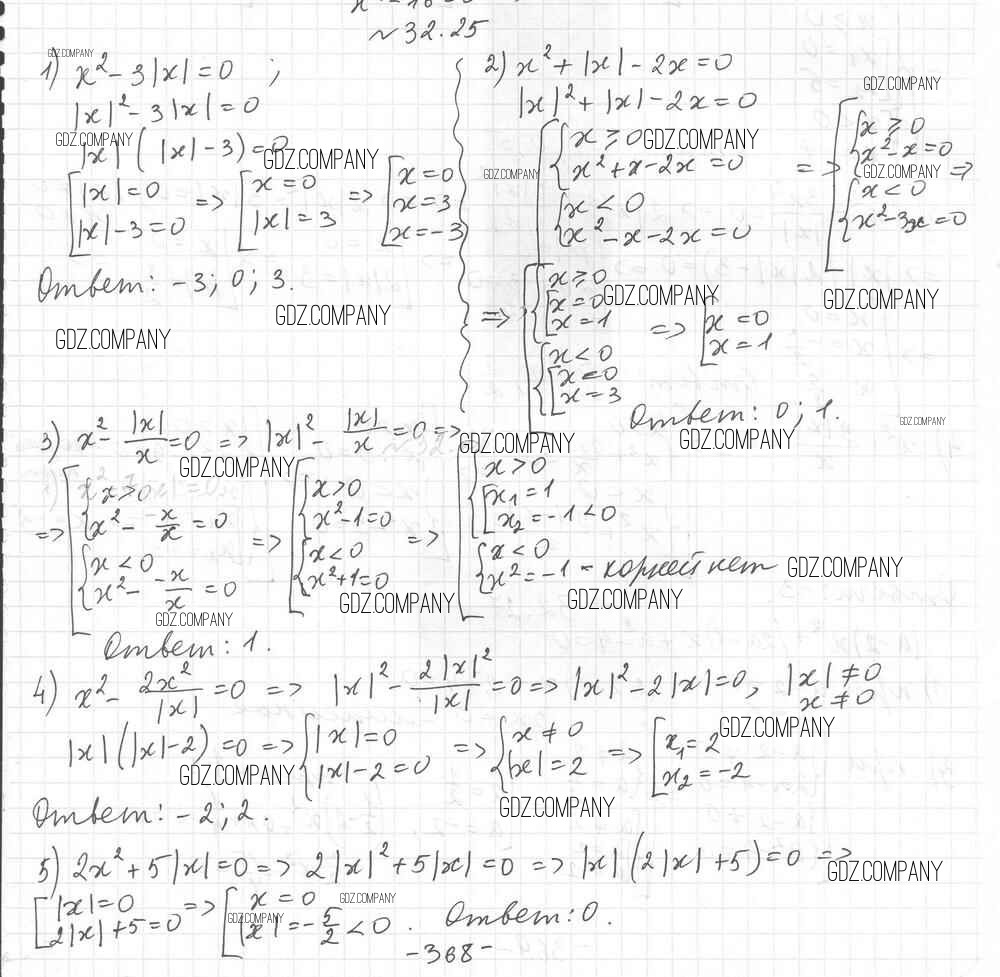 ~32.25
1) x² - 3|x| = 0 ;
|x|² - 3|x| = 0
|x| ( |x| - 3) = 0
[ |x| = 0 ; |x| - 3 = 0 => [ x = 0 ; |x| = 3 => [ x = 0 ; x = 3 ; x = -3
Ответ: -3; 0; 3.
2) x² + |x| - 2x = 0
|x|² + |x| - 2x = 0
[ { x ≥ 0 ; x² + x - 2x = 0 ; { x < 0 ; x² - x - 2x = 0 => [ { x ≥ 0 ; x² - x = 0 ; { x < 0 ; x² - 3x = 0 =>
=> [ { x ≥ 0 ; [ x = 0 ; x = 1 ; { x < 0 ; [ x = 0 ; x = 3 => [ x = 0 ; x = 1
Ответ: 0; 1.
3) x² - |x|/x = 0 => |x|² - |x|/x = 0 =>
=> [ { x > 0 ; x² - x/x = 0 ; { x < 0 ; x² - -x/x = 0 => [ { x > 0 ; x² - 1 = 0 ; { x < 0 ; x² + 1 = 0 => [ { x > 0 ; [ x₁ = 1 ; x₂ = -1 < 0 ; { x < 0 ; x² = -1 - корней нет
Ответ: 1.
4) x² - 2x²/|x| = 0 => |x|² - 2|x|²/|x| = 0 => |x|² - 2|x| = 0, |x| ≠ 0 x ≠ 0
|x| (|x| - 2) = 0 => { |x| = 0 ; |x| - 2 = 0 => { x ≠ 0 ; |x| = 2 => [ x₁ = 2 ; x₂ = -2
Ответ: -2; 2.
5) 2x² + 5|x| = 0 => 2|x|² + 5|x| = 0 => |x| (2|x| + 5) = 0 =>
[ |x| = 0 ; 2|x| + 5 = 0 => [ x = 0 ; |x| = -5/2 < 0 . Ответ: 0.
-368-
GDZ.COMPANY